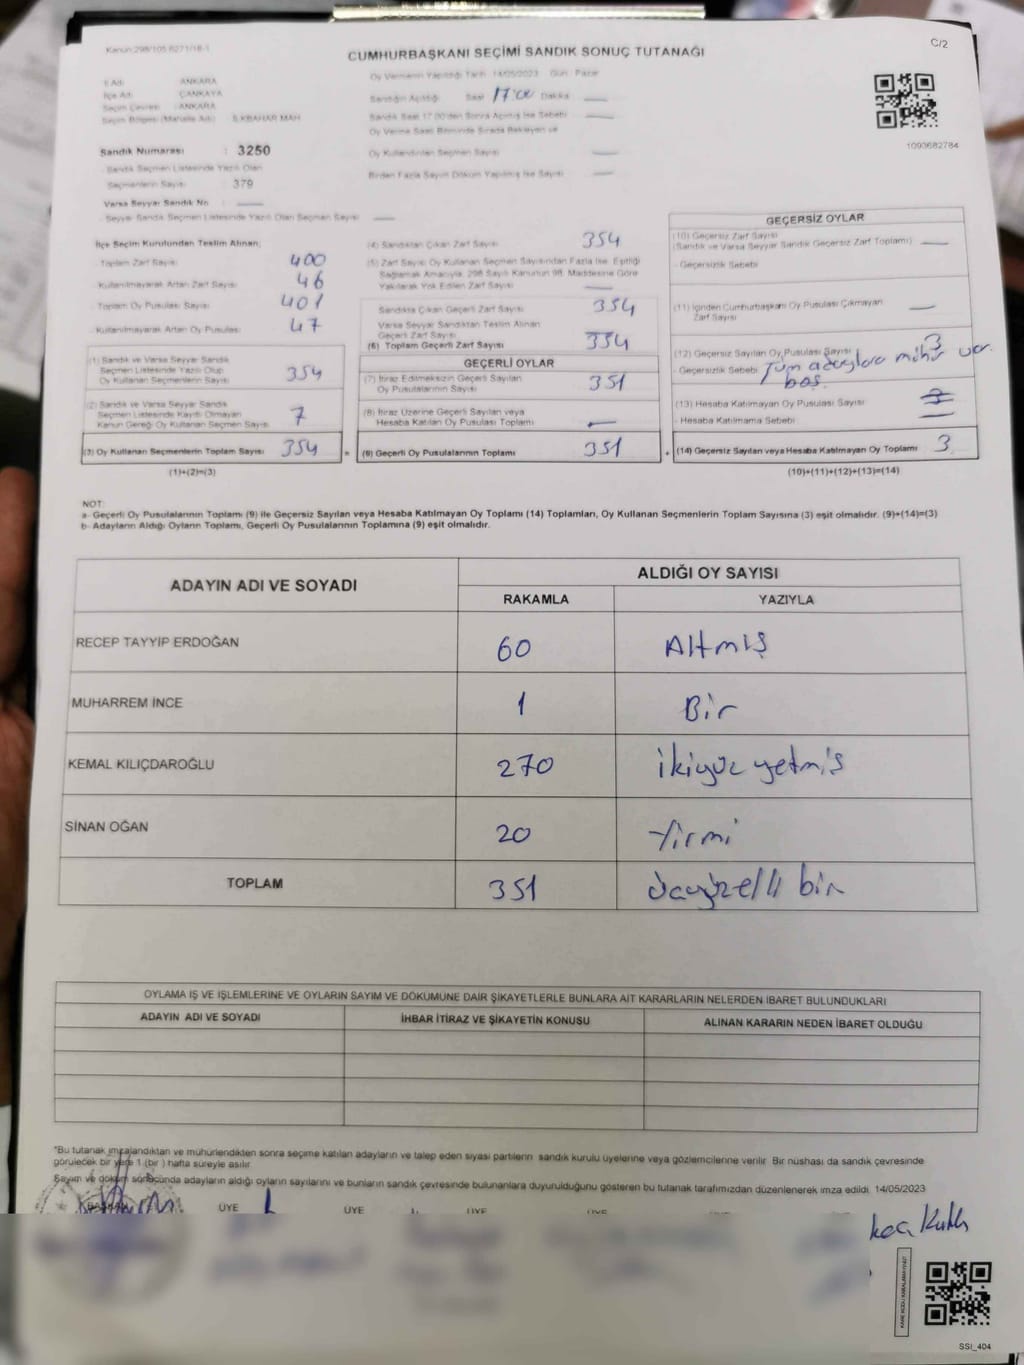 Kanun:298/105 6271/18-1
C/2
CUMHURBAŞKANI SEÇİMİ SANDIK SONUÇ TUTANAĞI
İl Adı : ANKARA
İlçe Adı : ÇANKAYA
Seçim Çevresi : ANKARA
Seçim Bölgesi (Mahalle Adı) : İLKBAHAR MAH
Sandık Numarası : 3250
Sandık Seçmen Listesinde Yazılı Olan
Seçmenlerin Sayısı : 379
Varsa Seyyar Sandık No
Seyyar Sandık Seçmen Listesinde Yazılı Olan Seçmen Sayısı
Oy Vermenin Yapıldığı Tarih 14/05/2023 Gün : Pazar
Sandığın Açıldığı Saat 17:00 Dakika
Sandık Saat 17.00'den Sonra Açılmış İse Sebebi
Oy Verme Saati Bitiminde Sırada Bekleyen ve
Oy Kullandırılan Seçmen Sayısı
Birden Fazla Sayım Döküm Yapılmış İse Sayısı
1090682784
İlçe Seçim Kurulundan Teslim Alınan;
- Toplam Zarf Sayısı 400
- Kullanılmayarak Artan Zarf Sayısı 46
- Toplam Oy Pusulası Sayısı 401
- Kullanılmayarak Artan Oy Pusulası 47
(1) Sandık ve Varsa Seyyar Sandık
Seçmen Listesinde Yazılı Olup
Oy Kullanan Seçmenlerin Sayısı 354
(2) Sandık ve Varsa Seyyar Sandık
Seçmen Listesinde Kayıtlı Olmayan
Kanun Gereği Oy Kullanan Seçmen Sayısı 7
(3) Oy Kullanan Seçmenlerin Toplam Sayısı 354
(1)+(2)=(3)
(4) Sandıktan Çıkan Zarf Sayısı 354
(5) Zarf Sayısı Oy Kullanan Seçmen Sayısından Fazla İse, Eşitliği
Sağlamak Amacıyla, 298 Sayılı Kanunun 98. Maddesine Göre
Yakılarak Yok Edilen Zarf Sayısı
Sandıkta Çıkan Geçerli Zarf Sayısı 354
Varsa Seyyar Sandıktan Teslim Alınan
Geçerli Zarf Sayısı
(6) Toplam Geçerli Zarf Sayısı 354
GEÇERLİ OYLAR
(7) İtiraz Edilmeksizin Geçerli Sayılan
Oy Pusulalarının Sayısı 351
(8) İtiraz Üzerine Geçerli Sayılan veya
Hesaba Katılan Oy Pusulası Toplamı
= (9) Geçerli Oy Pusulalarının Toplamı 351
GEÇERSİZ OYLAR
(10) Geçersiz Zarf Sayısı
(Sandık ve Varsa Seyyar Sandık Geçersiz Zarf Toplamı)
- Geçersizlik Sebebi
(11) İçinden Cumhurbaşkanı Oy Pusulası Çıkmayan
Zarf Sayısı
(12) Geçersiz Sayılan Oy Pusulası Sayısı 3
- Geçersizlik Sebebi Tüm adaylara mühür var.
boş.
(13) Hesaba Katılmayan Oy Pusulası Sayısı
- Hesaba Katılmama Sebebi
+ (14) Geçersiz Sayılan veya Hesaba Katılmayan Oy Toplamı 3
(10)+(11)+(12)+(13)=(14)
NOT:
a- Geçerli Oy Pusulalarının Toplamı (9) ile Geçersiz Sayılan veya Hesaba Katılmayan Oy Toplamı (14) Toplamları, Oy Kullanan Seçmenlerin Toplam Sayısına (3) eşit olmalıdır. (9)+(14)=(3)
b- Adayların Aldığı Oyların Toplamı, Geçerli Oy Pusulalarının Toplamına (9) eşit olmalıdır.
ADAYIN ADI VE SOYADI
ALDIĞI OY SAYISI
RAKAMLA YAZIYLA
RECEP TAYYİP ERDOĞAN 60 Altmış
MUHARREM İNCE 1 Bir
KEMAL KILIÇDAROĞLU 270 ikiyüz yetmiş
SİNAN OĞAN 20 Yirmi
TOPLAM 351 üçyüzelli bir
OYLAMA İŞ VE İŞLEMLERİNE VE OYLARIN SAYIM VE DÖKÜMÜNE DAİR ŞİKAYETLERLE BUNLARA AİT KARARLARIN NELERDEN İBARET BULUNDUKLARI
ADAYIN ADI VE SOYADI İHBAR İTİRAZ VE ŞİKAYETİN KONUSU ALINAN KARARIN NEDEN İBARET OLDUĞU
*Bu tutanak imzalandıktan ve mühürlendikten sonra seçime katılan adayların ve talep eden siyasi partilerin sandık kurulu üyelerine veya gözlemcilerine verilir. Bir nüshası da sandık çevresinde
görülecek bir yere 1 (bir ) hafta süreyle asılır.
Sayım ve döküm sonucunda adayların aldığı oyların sayılarını ve bunların sandık çevresinde bulunanlara duyurulduğunu gösteren bu tutanak tarafımızdan düzenlenerek imza edildi. 14/05/2023
ÜYE ÜYE ÜYE ÜYE
SSI_404